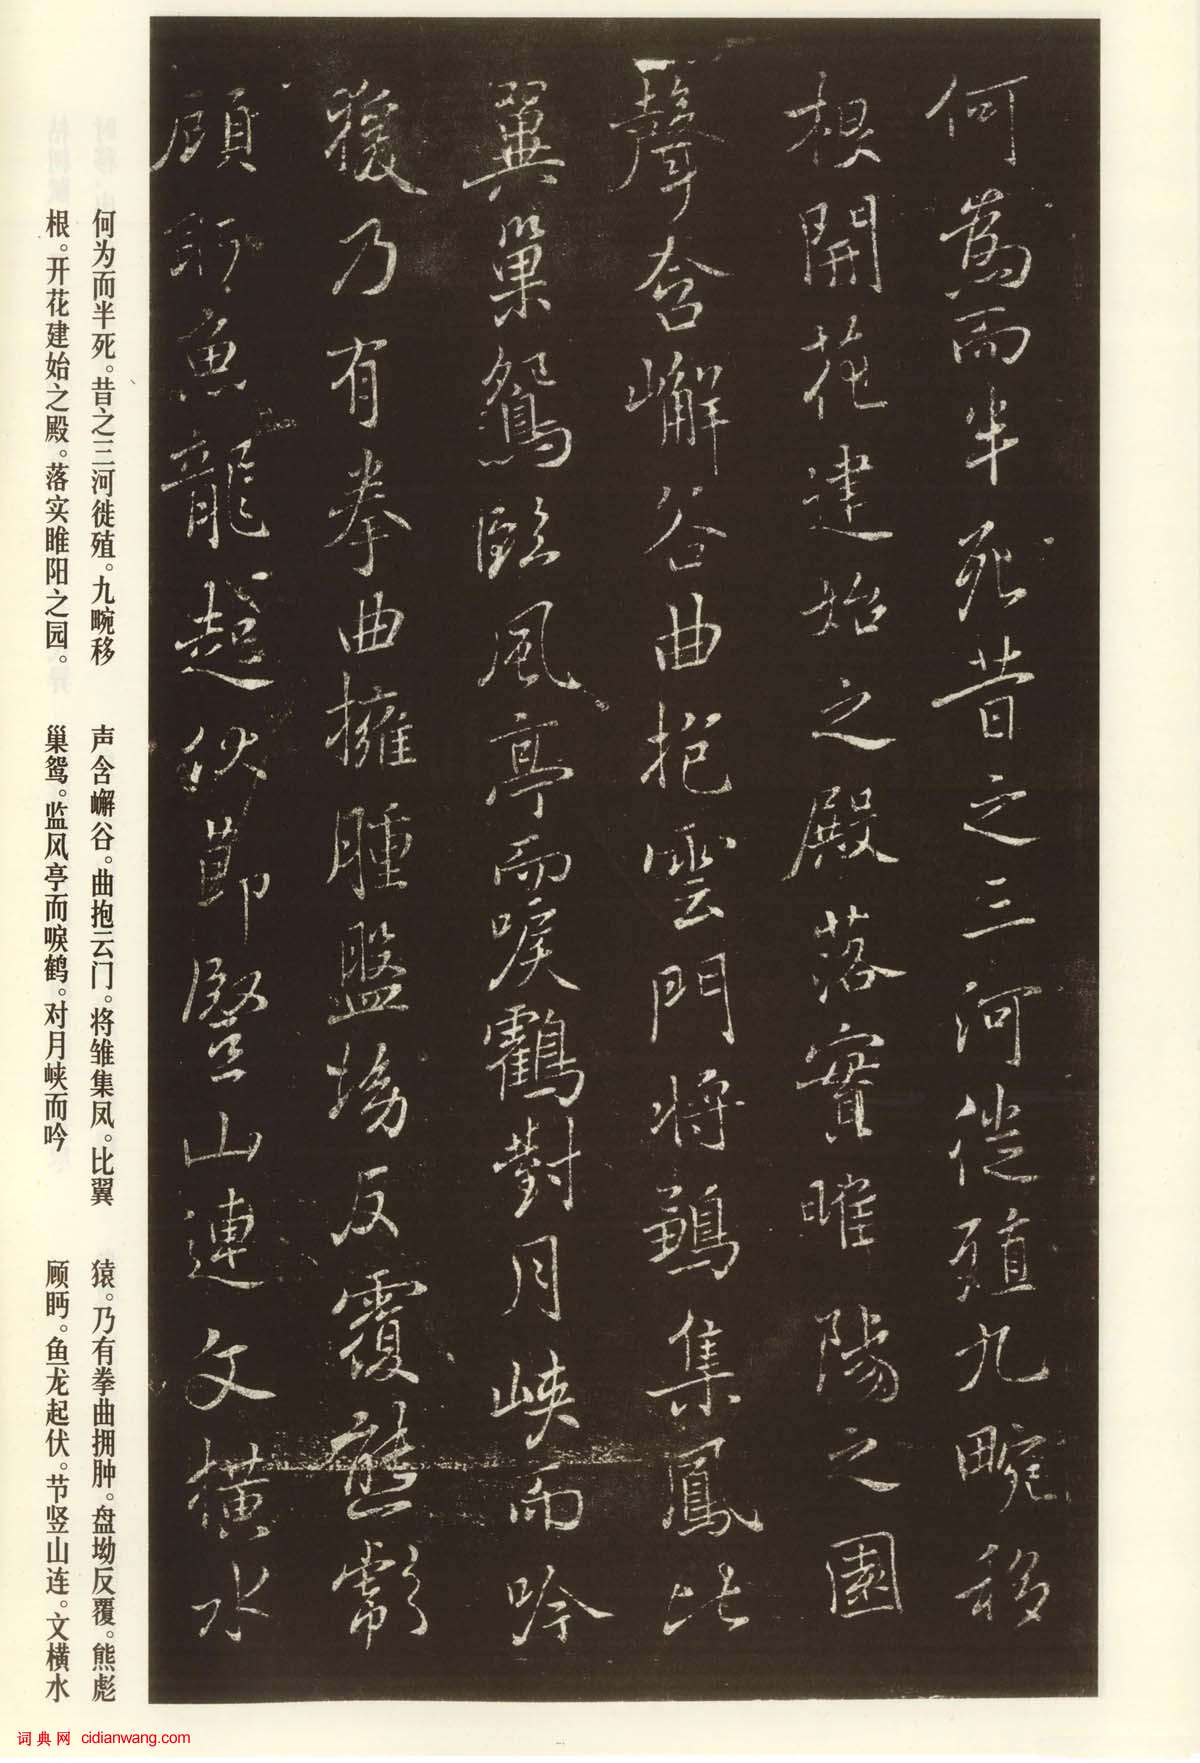 何為而半死昔之三河徙殖九畹移
根開花建始之殿落實睢陽之園
聲含嶰谷曲抱雲門將鶵集鳳比
翼巢鴛臨風亭而唳鶴對月峽而吟
猨乃有拳曲擁腫盤坳反覆熊彪
顧眄魚龍起伏節竪山連文橫水
何为而半死。昔之三河徙殖。九畹移
根。开花建始之殿。落实睢阳之园。
声含嶰谷。曲抱云门。将雏集凤。比翼
巢鸳。监风亭而唳鹤。对月峡而吟
猿。乃有拳曲拥肿。盘坳反覆。熊彪
顾眄。鱼龙起伏。节竖山连。文横水
词典网 cidianwang.com